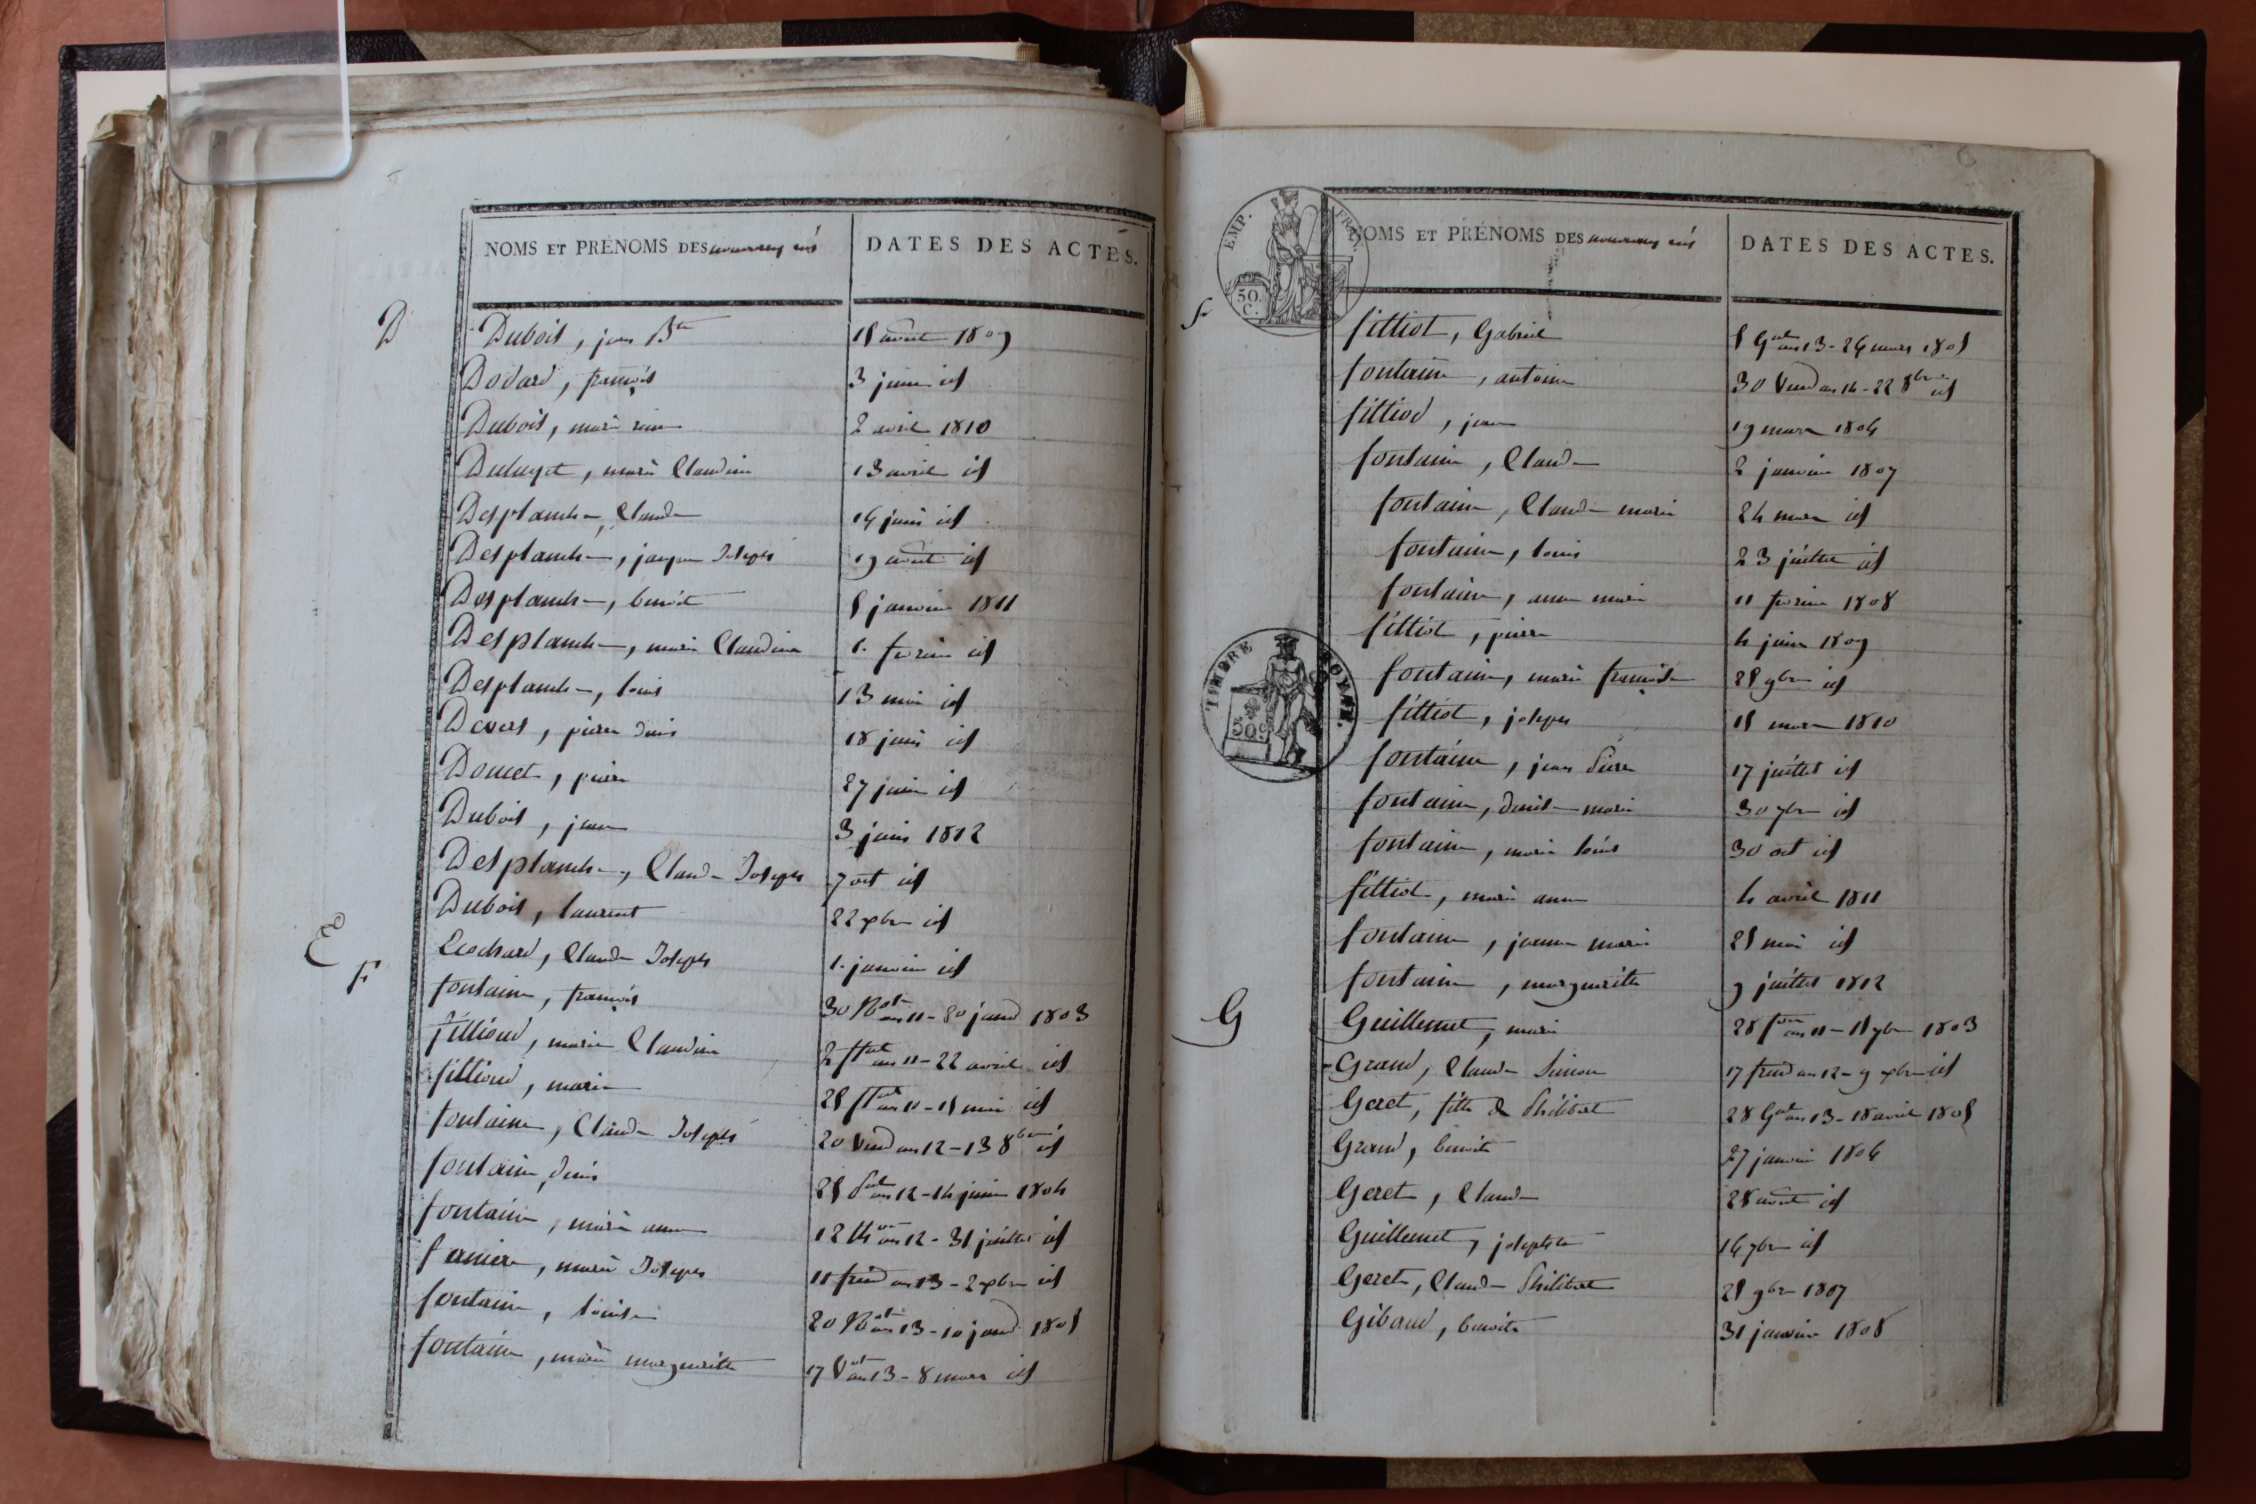 NOMS ET PRÉNOMS DES nouveaux nés
DATES DES ACTES.
D
Dubois, jean Bte
15 août 1809
Dodard, françois
3 juin id
Dubois, marie
2 avril 1810
marie Claudine
13 avril id
Desplanche, Claude
14 juin id
Desplanche, jacques Joseph
19 août id
Desplanche, benoit
5 janvier 1811
Desplanche, marie Claudine
1. fevrier id
Desplanche, louis
13 mai id
pierre denis
18 juin id
Domet, pierre
27 juin id
Dubois, jean
3 juin 1812
Desplanche, Claude Joseph
7 oct id
Dubois, laurent
22 xbre id
E
Ecochard, Claude Joseph
1. janvier id
F
fontaine, françois
30 an 11 - 20 janv 1803
fillioud, marie Claudine
2 an 11 - 22 avril id
fillioud, marie
25 an 11 - 15 mai id
fontaine, Claude Joseph
20 Vend an 12 - 13 8bre id
fontaine, denis
25 an 12 - 14 juin 1804
fontaine, marie anne
12 an 12 - 31 juillet id
marie Joseph
11 frim an 13 - 2 xbre id
fontaine, louise
20 an 13 - 10 janv 1805
fontaine, marie margueritte
17 Vent an 13 - 8 mars id
EMP. FRA.
50 C.
NOMS ET PRÉNOMS DES nouveaux nés
DATES DES ACTES.
f
filliot, Gabriel
5 Gal an 13 - 26 mars 1805
fontaine, antoine
30 Vend an 14 - 22 8bre id
filliod, jean
19 mars 1806
fontaine, Claude
2 janvier 1807
fontaine, Claude marie
24 mars id
fontaine, louis
23 juillet id
fontaine, anne marie
11 fevrier 1808
filliot, pierre
4 juin 1809
TIMBRE ROYAL.
50c
fontaine, marie françoise
25 9bre id
filliot, joseph
15 mars 1810
fontaine, jean Pierre
17 juillet id
fontaine, denise marie
30 7bre id
fontaine, marie louise
30 oct id
filliot, marie anne
4 avril 1811
fontaine, jeanne marie
25 mai id
fontaine, margueritte
9 juillet 1812
G
Guillemet, marie
28 an 11 - 15 7bre 1803
Grand, Claude Simon
17 frim an 12 - 9 xbre id
Geret, fille de Philibert
28 Gal an 13 - 18 avril 1805
Grand, benoite
27 janvier 1806
Geret, Claude
28 août id
Guillemet, josephte
16 7bre id
Geret, Claude Philibert
25 9bre 1807
Giband, benoite
31 janvier 1808